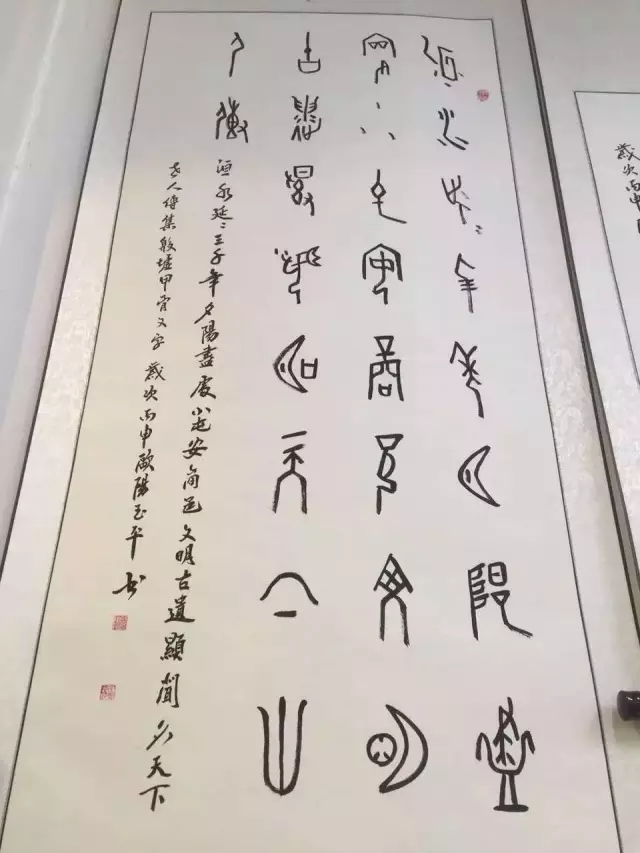 洹水延〻三千年夕陽盡
處小屯安商邑文明
古遺顯聞名天下
洹水延〻三千年夕陽盡處小屯安商邑文明古遺顯聞名天下
人傳集殷墟甲骨文字 歲次丙申歐陽玉平書
歲次丙申